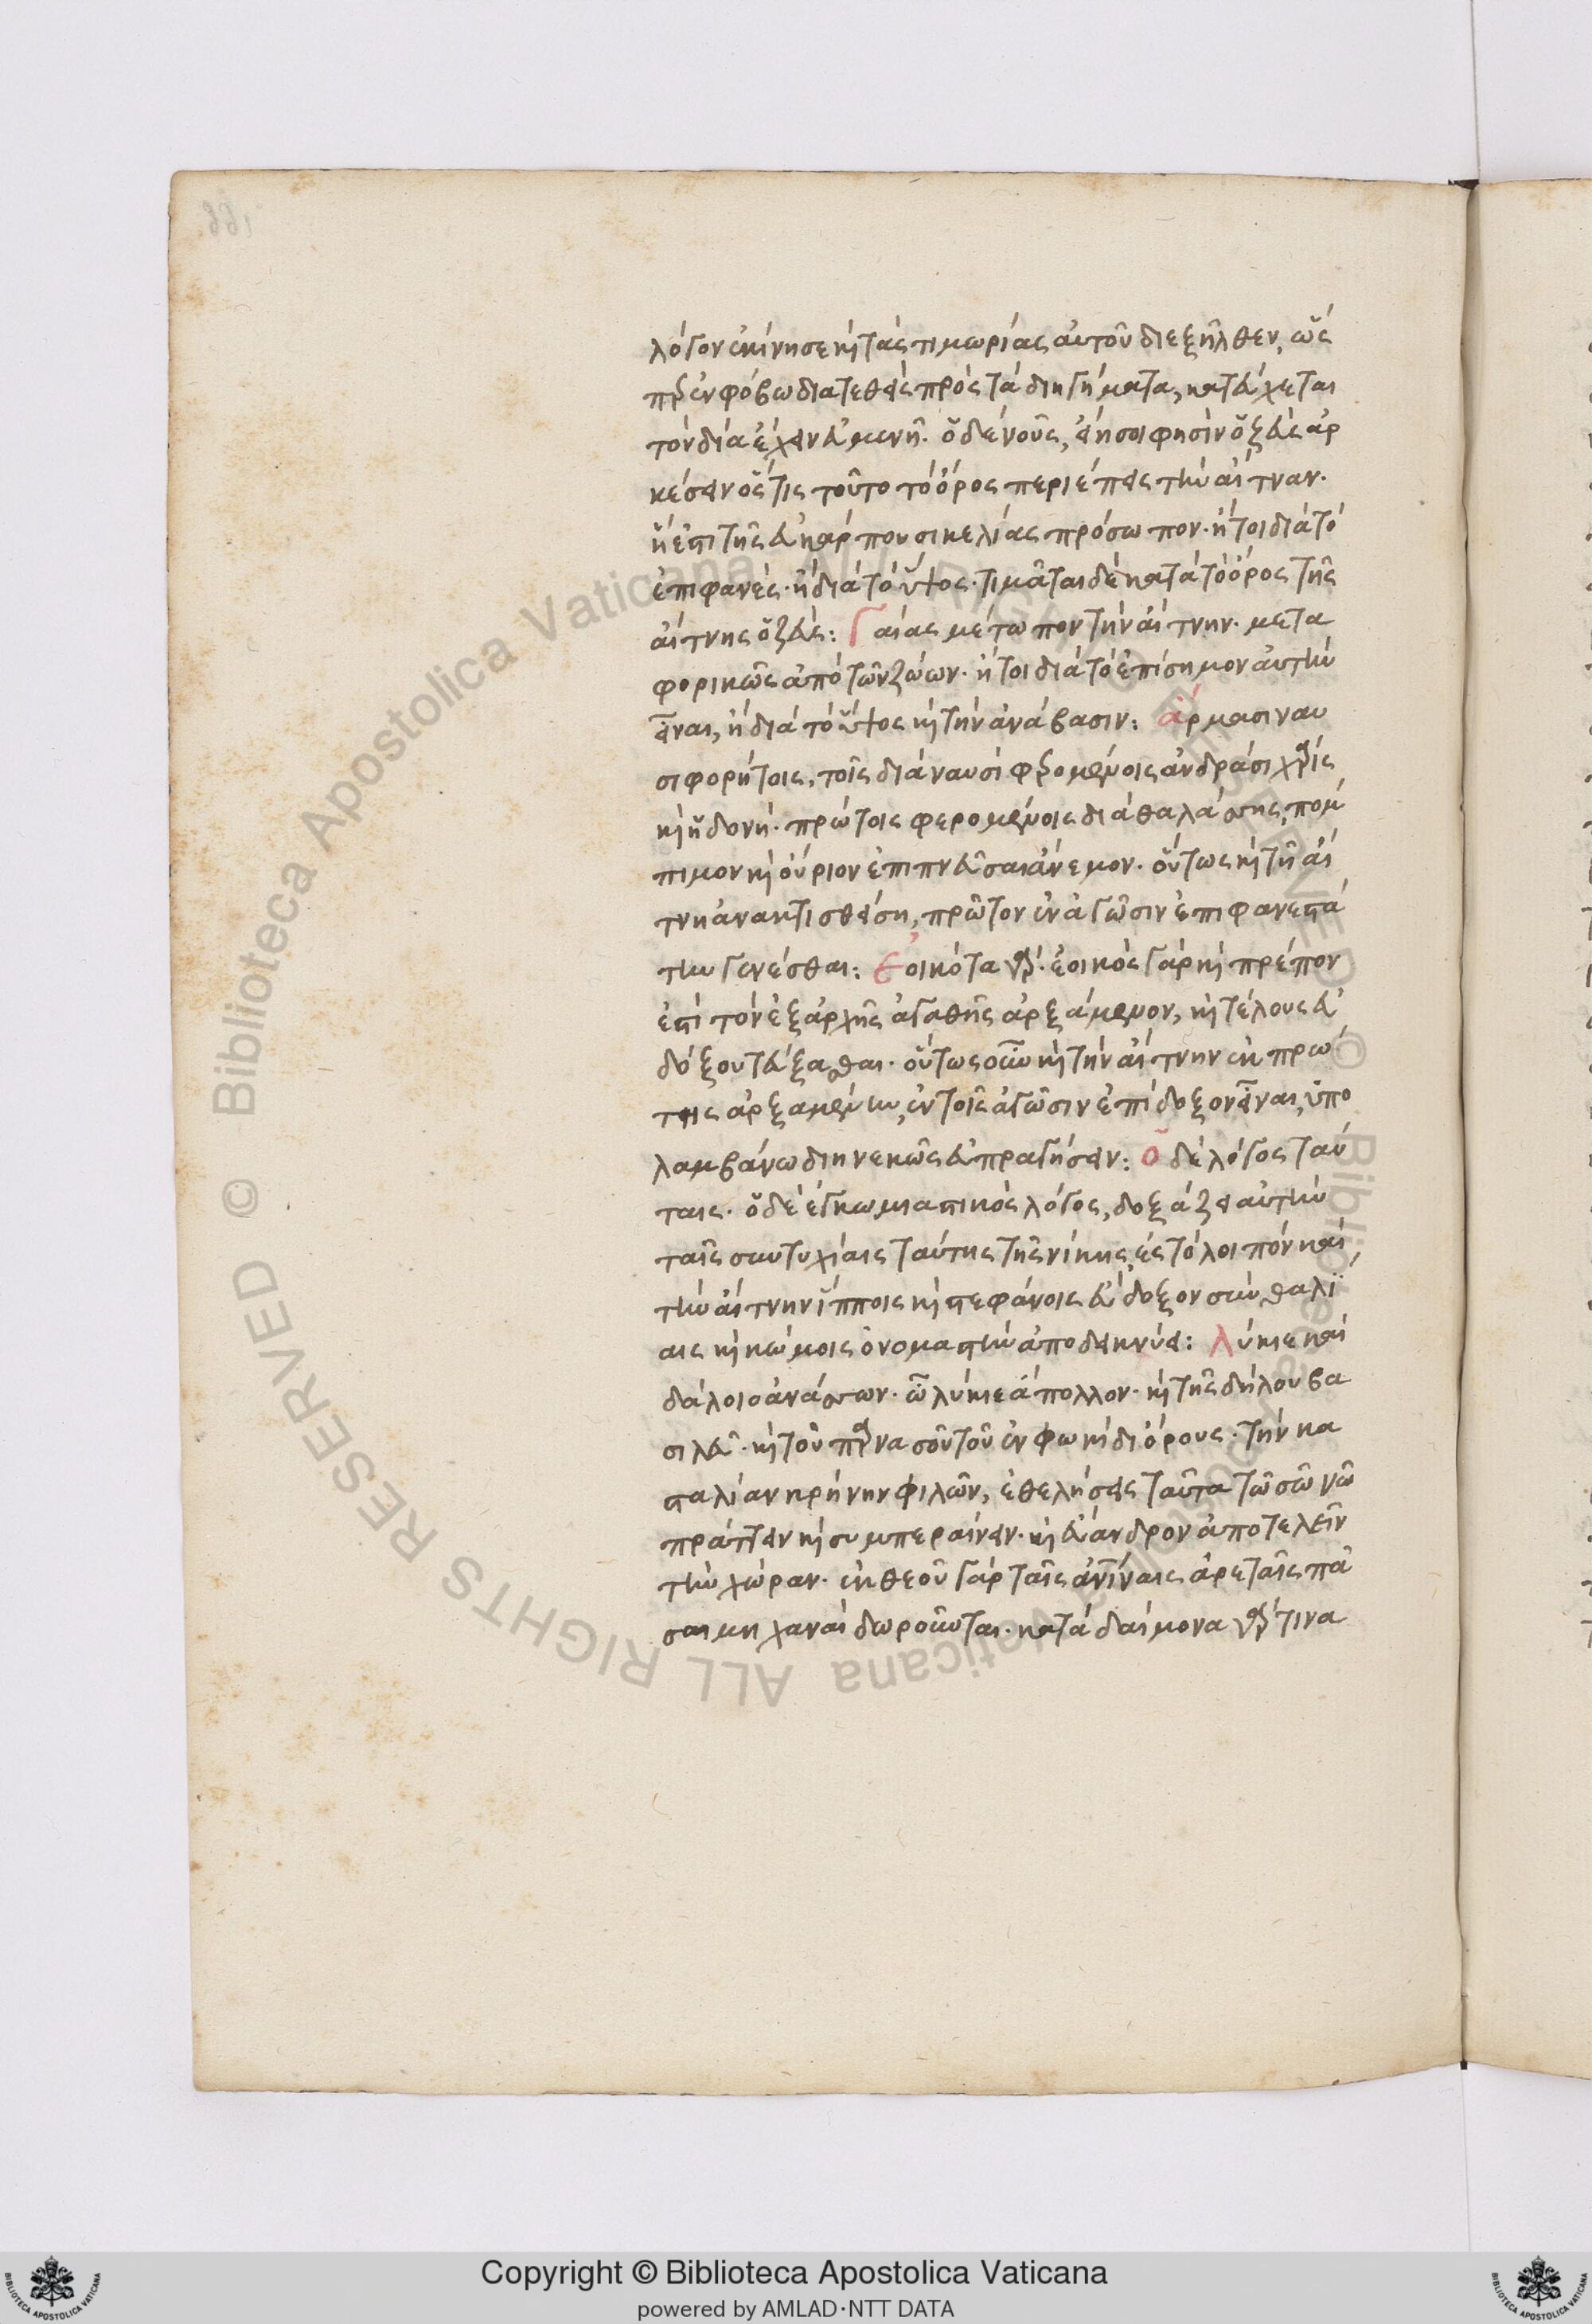 λόγον ἐκίνησε κ̀ τὰς τιμωρίας αὐτοῦ διεξῆλθεν, ὥς
πρ ἐν φόβω διατεθεὶς πρὸς τὰ διηγήματα, κατεύχεται
τὸν δία ἔχειν εὐμενῆ. ὁ δὲ νοῦς, εἴη σοι φησὶν ὁ ζεὺς ἀρ
κέσειν ὅς τις τοῦτο τὸ ὄρος περιέπεις τὴν αἴτναν.
ἥ ἐστι τῆς εὐκάρπου σικελίας πρόσωπον. ἤτοι διὰ τὸ
ἐπιφανὲς. ἢ διὰ τὸ ὕψος. τιμᾶται δὲ κατὰ τὸ ὄρος τῆς
αἴτνης ὁ ζεύς: Γαίας μέτωπον τὴν αἴτνην. μετα
φορικῶς ἀπὸ τῶν ζώων. ἤτοι διὰ τὸ ἐπίσημον αὐτὴν
εἶναι, ἢ διὰ τὸ ὕψος κ̀ τὴν ἀνάβασιν: ἁρμασι ναυ
σιφορήτοις, τοῖς διὰ ναυσὶ φερομένοις ἀνδράσι χάρις
κ̀ ἡδονὴ. πρώτοις φερομένοις διὰ θαλάσσης, πομ
πιμον κ̀ οὔριον ἐπιπνεῦσαι ἄνεμον. οὕτως κ̀ τῆ αἴ
τνη ἀνακτισθείση, πρῶτον ἐν ἀγῶσιν ἐπιφανεστά
την γενέσθαι: Ἐοικότα γὰρ. ἐοικὸς γὰρ κ̀ πρέπον
ἐστὶ τὸν ἐξ ἀρχῆς ἀγαθῆς ἀρξάμενον, κ̀ τέλους εὐ
δόξου τεύξασθαι. οὕτως οὖν κ̀ τὴν αἴτνην ἐκ πρώ
της ἀρξαμένην, ἐν τοῖς ἀγῶσιν ἐπίδοξον εἶναι, ὑπο
λαμβάνω διηνεκῶς εὐπραγήσειν: Ὁ δὲ λόγος ταύ
ταις. ὁ δὲ ἐγκωμιαστικὸς λόγος, δοξάζει αὐτὴν
ταῖς συντυχίαις ταύτης τῆς νίκης, ἐς τὸ λοιπὸν καὶ
τὴν αἴτνην ἵπποις κ̀ στεφάνοις εὔδοξον σὺν θαλί
αις κ̀ κώμοις ὀνομαστὴν ἀποδεικνύει: Λύκιε καὶ
δάλοιο ἀνάσσων. ὦ λύκιε ἄπολλον. κ̀ τῆς δήλου βα
σιλεῦ. κ̀ τοῦ παρνασοῦ τοῦ ἐν φωκίδι ὄρους. τὴν κα
σταλίαν κρήνην φιλῶν, ἐθελήσεις ταῦτα τῶ σῶ νῶ
πράττειν κ̀ συμπεραίνειν. κ̀ εὔανδρον ἀποτελεῖν
τὴν χώραν. ἐκ θεοῦ γὰρ ταῖς ἀνίναις ἀρεταῖς πᾶ
σαι μηχαναὶ δωροῦνται. κατὰ δαίμονα γάρ τινα